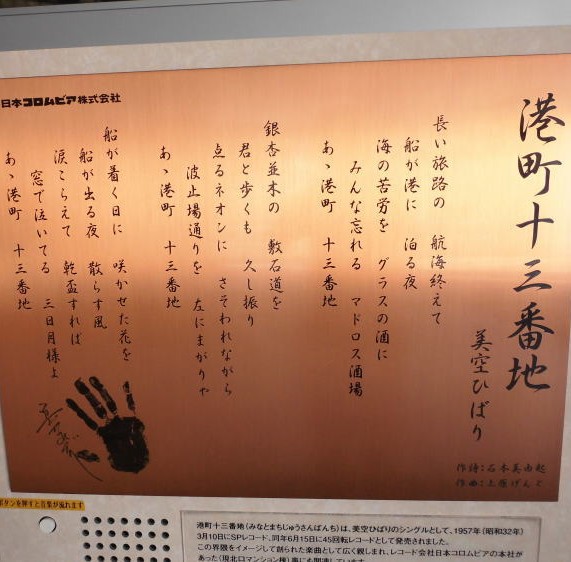 日本コロムビア株式会社
港町十三番地
美空ひばり
長い旅路の 航海終えて
船が港に 泊る夜
海の苦労を グラスの酒に
みんな忘れる マドロス酒場
あゝ港町 十三番地
銀杏並木の 敷石道を
君と歩くも 久し振り
点るネオンに さそわれながら
波止場通りを 左にまがりゃ
あゝ港町 十三番地
船が着く日に 咲かせた花を
船が出る夜 散らす風
涙こらえて 乾盃すれば
窓で泣いてる 三日月様よ
あゝ港町 十三番地
作詩：石本美由起
作曲：上原げんと
ボタンを押すと音楽が流れます
港町十三番地（みなとまちじゅうさんばんち）は、美空ひばりのシングルとして、1957年（昭和32年）
3月10日にSPレコード、同年6月15日に45回転レコードとして発売されました。
この界隈をイメージして創られた楽曲として広く親しまれ、レコード会社日本コロムビアの本社が
あった（現北ロマンション棟）事にも関連しています